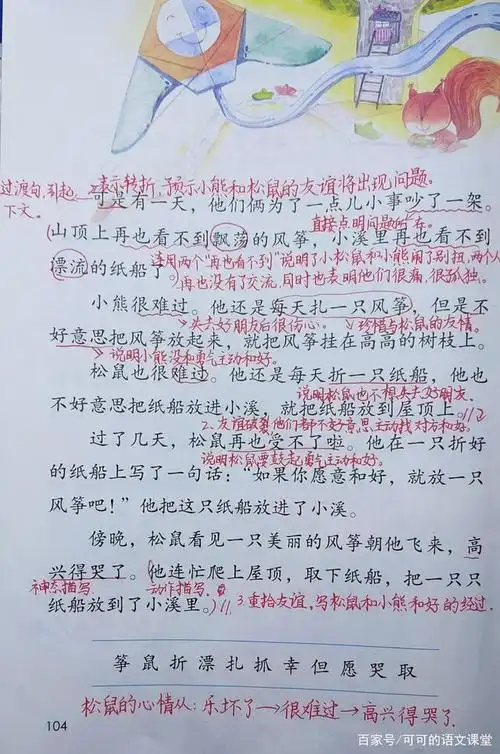 过渡句,引起
下文。
表示转折,预示小熊和松鼠的友谊将出现问题。
可是有一天,他们俩为了一点儿小事吵了一架。
直接点明问题所在。
山顶上再也看不到飘荡的风筝,小溪里再也看不到
漂流的纸船了。
连用两个“再也看不到”说明了小松鼠和小熊闹了别扭,两个人
再也没有了交流,同时也表明他们很痛,很孤独。
小熊很难过。他还是每天扎一只风筝,但是不
失去好朋友后很伤心。
珍惜与松鼠的友情。
好意思把风筝放起来,就把风筝挂在高高的树枝上。
说明小熊没和勇气主动和好。
松鼠也很难过。他还是每天折一只纸船,他也
说明松鼠也不想失去好朋友.
不好意思把纸船放进小溪,就把纸船放到屋顶上。
2、友谊破裂他们都不好意思主动找对方和好。
过了几天,松鼠再也受不了啦。他在一只折好
说明松鼠要鼓起勇气主动和好。
的纸船上写了一句话:“如果你愿意和好,就放一只
风筝吧!”他把这只纸船放进了小溪。
傍晚,松鼠看见一只美丽的风筝朝他飞来,高
兴得哭了。他连忙爬上屋顶,取下纸船,把一只只
神态描写
动作描写.
纸船放到了小溪里。
3.重拾友谊,写松鼠和小熊和好的经过.
筝 鼠 折 漂 扎 抓 幸 但 愿 哭 取
松鼠的心情从:乐坏了→很难过→高兴得哭了.
104
百家号/可可的语文课堂